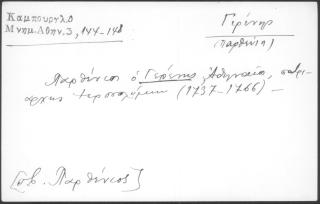 Καμπούρογλο
Μνημ. Αθην. 3, 144-148
Γερένης
(Παρθένιος)
Παρθένιος ὁ Γερένης, Ἀθηναῖος, πατρι-
άρχης Ἱεροσολύμων (1737-1766) —
[πβ. Παρθένιος]